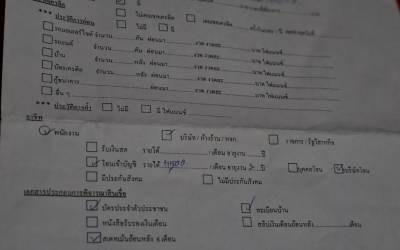 *** ประวัติการผ่อน ไม่มี มี
รถมอเตอร์ไซค์ จำนวน คัน ผ่อนมา งวด งวดละ บาท ไฟแนนซ์
รถยนต์ จำนวน คัน ผ่อนมา งวด งวดละ บาท ไฟแนนซ์
บ้าน จำนวน หลัง ผ่อนมา งวด งวดละ บาท ไฟแนนซ์
บัตรเครดิต จำนวน ผ่อนมา งวด งวดละ
กู้ธนาคาร ผ่อนมา งวด งวดละ
อื่น ๆ
*** ประวัติการค้ำ ไม่มี มี ไฟแนนซ์
อาชีพ
พนักงาน บริษัท / ห้างร้าน / หจก ราชการ / รัฐวิสาหกิจ
รับเงินสด รายได้ /เดือน อายุงาน ปี
โอนเข้าบัญชี รายได้ /เดือน อายุงาน 2 ปี บุคคลโอน บริษัทโอน
มีประกันสังคม ไม่มีประกันสังคม
เอกสารประกอบการพิจารณาสินเชื่อ
บัตรประจำตัวประชาชน ทะเบียนบ้าน
หนังสือรับรองเงินเดือน สลิปเงินเดือนย้อนหลัง เดือน
สเตทเม้นย้อนหลัง 6 เดือน